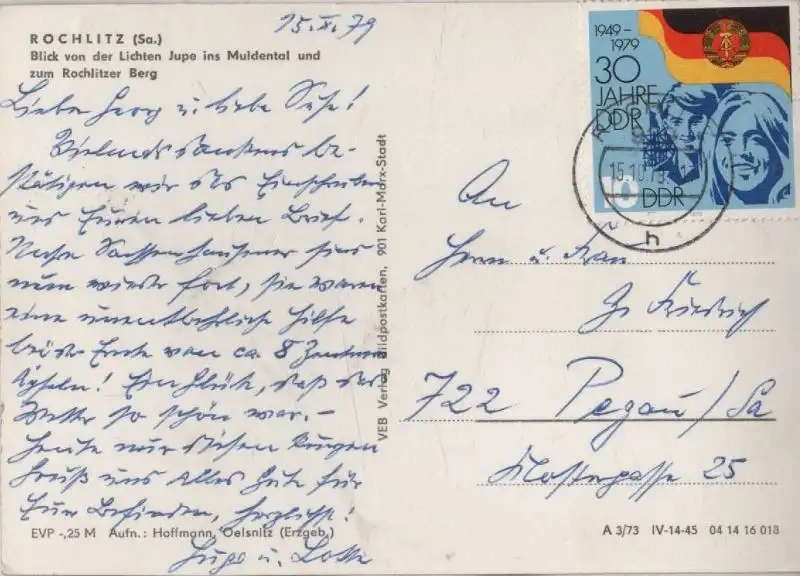 15.X.79
ROCHLITZ (Sa.)
Blick von der Lichten Jupe ins Muldental und
zum Rochlitzer Berg
Liebe Georg u. liebe Suse!
Vielmals dankens be-
stätigen wir das Einschreiben
und Euren lieben Brief.
sind
nun wieder fort, sie waren
eine unentbehrliche Hilfe
bei der Ernte von ca. 8 Zentner
Äpfeln! Ein Glück, daß das
Wetter so schön war. –
Heute nur diesen kurzen
Gruß und alles Gute für
Euer Befinden, herzlichst!
Hugo u. Lotte
EVP -,25 M Aufn.: Hoffmann, Oelsnitz (Erzgeb.)
VEB Verlag Bildpostkarten, 901 Karl-Marx-Stadt
1949–
1979
30
JAHRE
DDR
10 DDR
15.10.79
h
An
Herrn u. Frau
G. Friedrich
722 Pegau/Sa
Klostergasse 25
A 3/73 IV-14-45 04 14 16 018